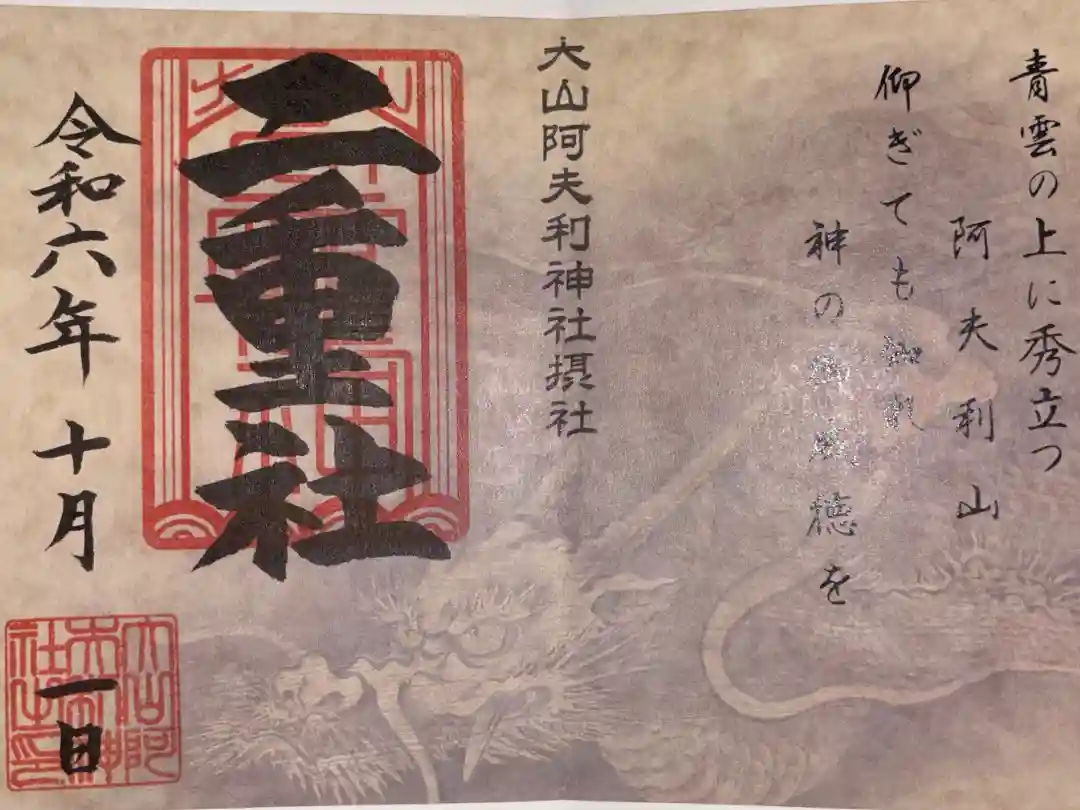 青雲の上に秀立つ
阿夫利山
仰ぎても知れ
神の徳を
大山阿夫利神社摂社
二重社
令和六年十月
一日
大山阿
社之印